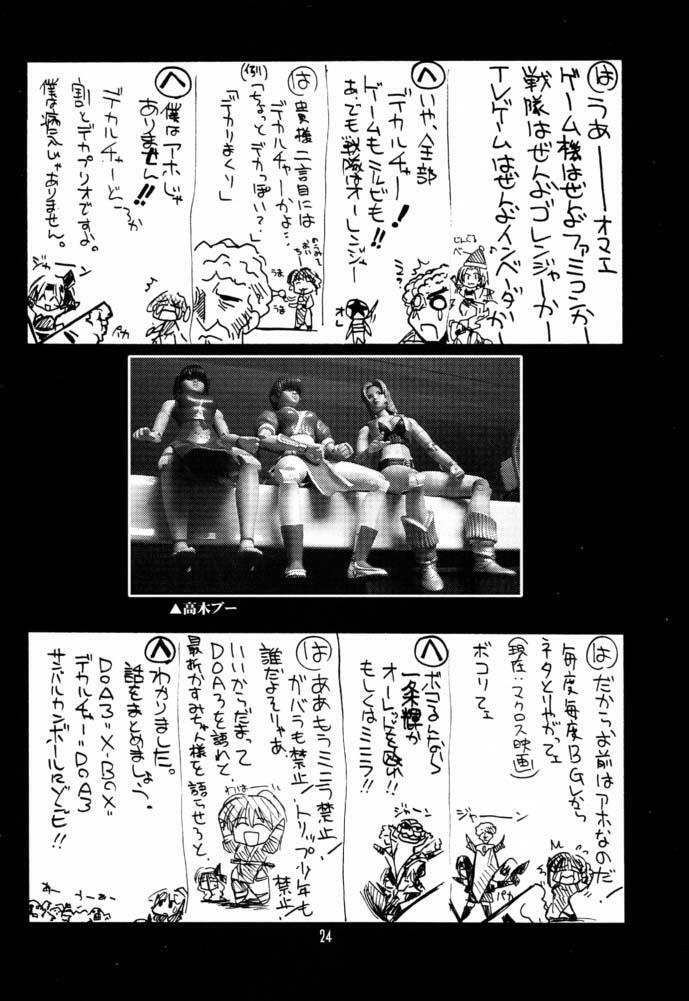 は
うあーーオマエ
ゲーム機はぜんぶファミコンかー
戦隊はぜんぶゴレンジャーかー
TVゲームはぜんぶインベーダーかー
へ
いや、全部
デカルチャー!
ゲームもミルビも!!
あ、でも戦隊はオーレンジャー
は
貴様二言目には
デカルチャーかよ…
(例)
「ちょっとデカっぽい?」
「デカりまくり」
へ
僕はアホじゃ
ありません!!
デカルチャーどころか
割とデカプリオですよ。
僕は病人じゃありません。
じんぐる
べー
オレ
うま
うま
ジャーン
パカ
▲高木ブー
は
だからお前はアホなのだ!
毎度毎度BGVから
ネタとりやがってェ
(現在:マクロス映画)
ボコリてェ
へ
ボコるんなら
一条輝か
オーレッドを殴れ!!
もしくはミニラ!!
は
ああもうミニラ禁止!
ガバラも禁止!トリップ少年も禁止!
誰だよそりゃあ
いいからだまって
DOA3を語れて
最新かすみちゃん様を語らせろと
へ
わかりました。
話をまとめましょう。
DOA3=X-BOX=
デカルチャー=DOA3
サンバルカンボールRゾビ!!
ジャーン
ジャーン
パカ
わは
24